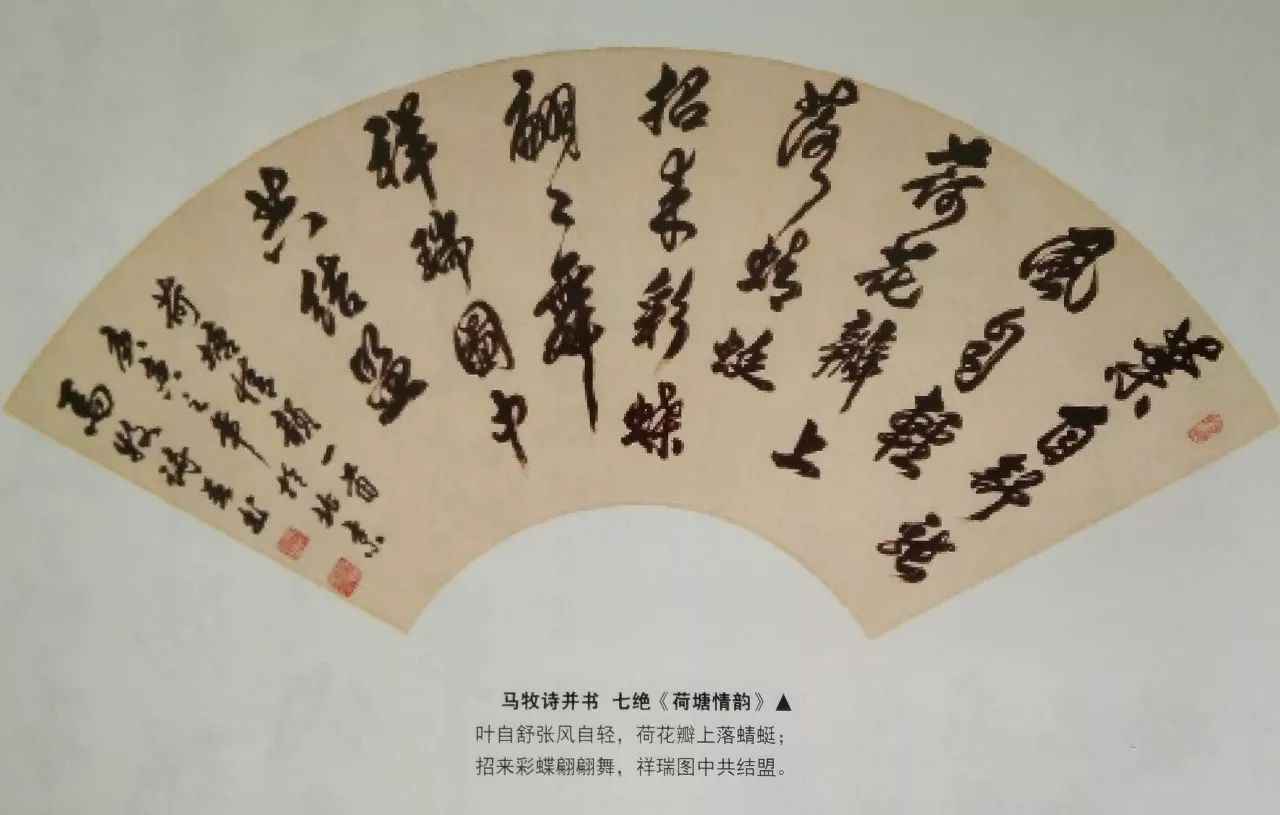 葉自舒張
風自輕
荷花瓣上
落蜻蜓
招来彩蝶
翩〻舞
祥瑞圖中
共结盟
荷塘情韻一首
庚寅之年於北京
馬牧詩并书
马牧诗并书 七绝《荷塘情韵》▲
叶自舒张风自轻，荷花瓣上落蜻蜓；
招来彩蝶翩翩舞，祥瑞图中共结盟。